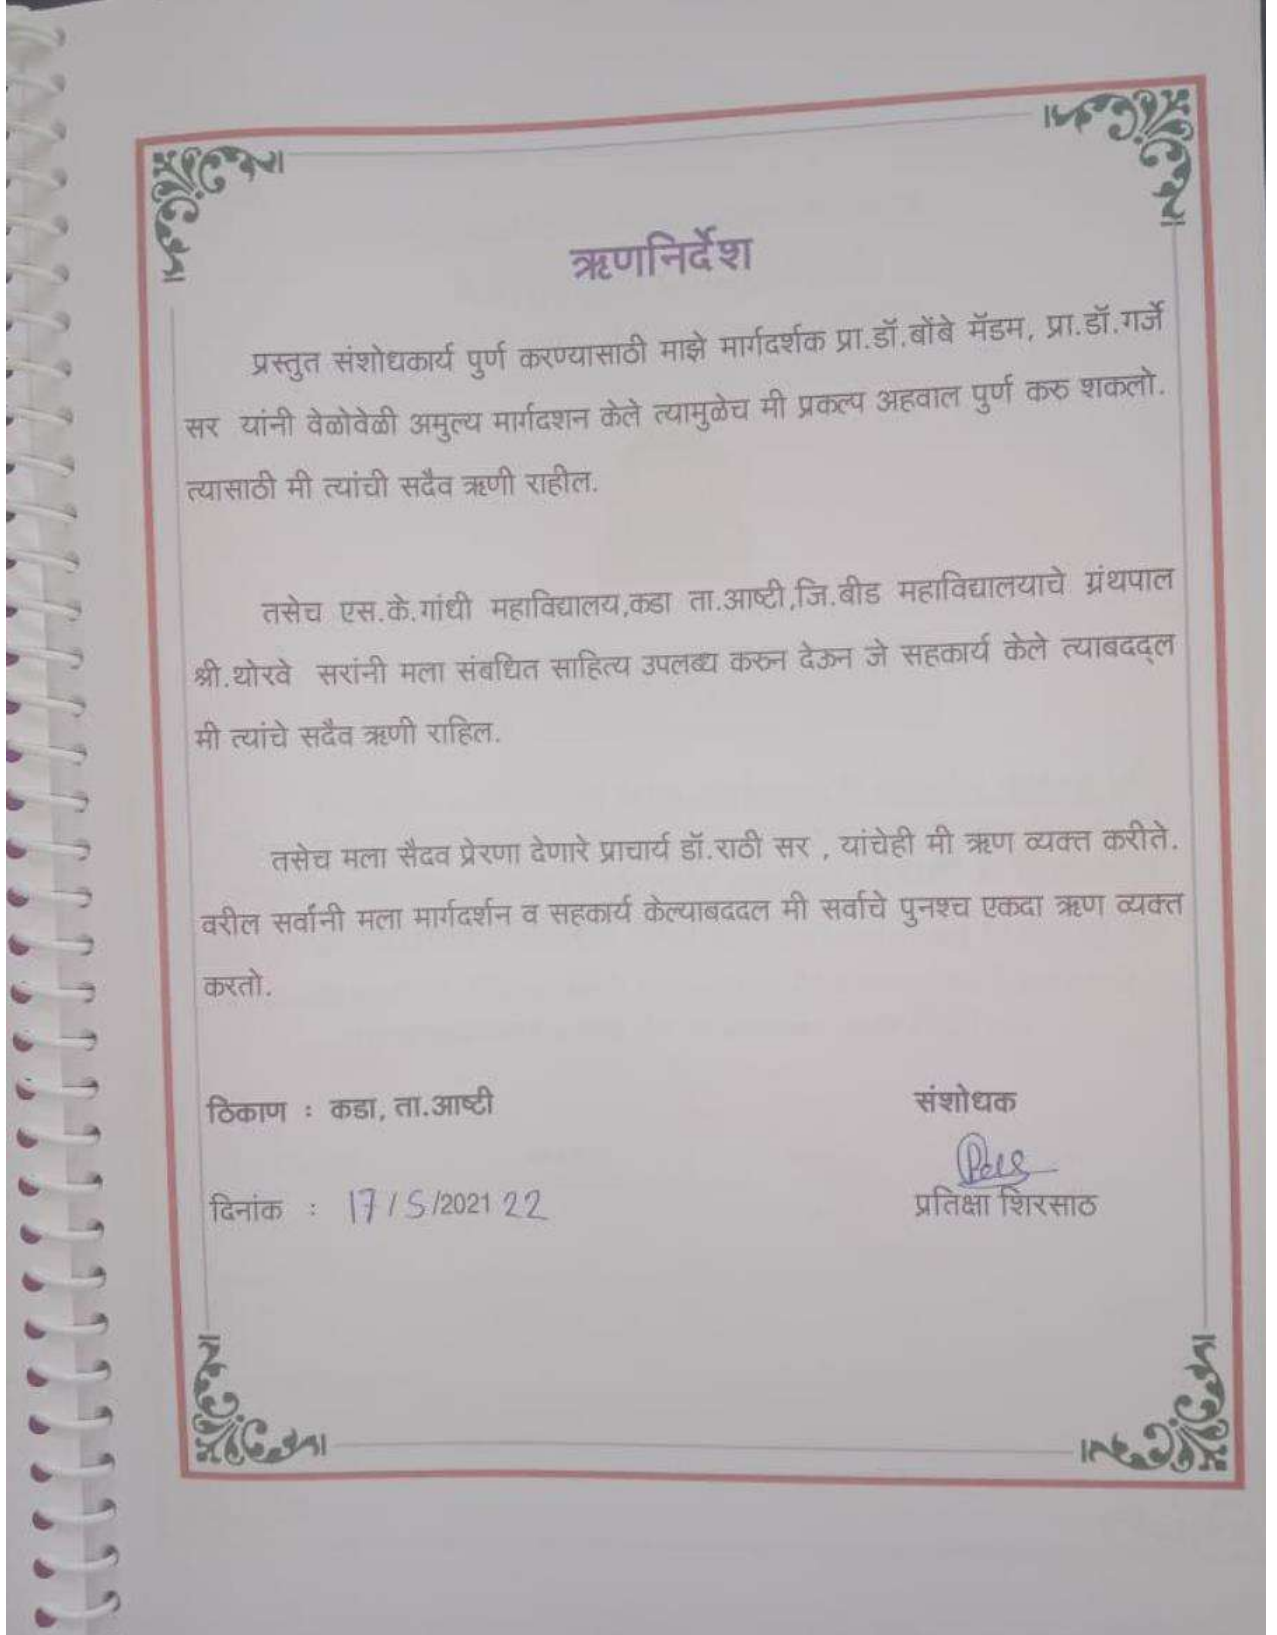 ऋणनिर्देश
प्रस्तुत संशोधकार्य पुर्ण करण्यासाठी माझे मार्गदर्शक प्रा.डॉ.बोंबे मॅडम, प्रा.डॉ.गर्जे
सर यांनी वेळोवेळी अमुल्य मार्गदशन केले त्यामुळेच मी प्रकल्प अहवाल पुर्ण करु शकलो.
त्यासाठी मी त्यांची सदैव ऋणी राहील.
तसेच एस.के.गांधी महाविद्यालय,कडा ता.आष्टी,जि.बीड महाविद्यालयाचे ग्रंथपाल
श्री.थोरवे सरांनी मला संबधित साहित्य उपलब्ध करुन देऊन जे सहकार्य केले त्याबदद्ल
मी त्यांचे सदैव ऋणी राहिल.
तसेच मला सैदव प्रेरणा देणारे प्राचार्य डॉ.राठी सर , यांचेही मी ऋण व्यक्त करीते.
वरील सर्वानी मला मार्गदर्शन व सहकार्य केल्याबददल मी सर्वाचे पुनश्च एकदा ऋण व्यक्त
करतो.
ठिकाण : कडा, ता.आष्टी संशोधक
दिनांक : 17/5/2021 22 प्रतिक्षा शिरसाठ